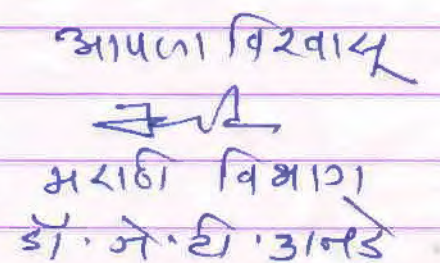 आपला विश्वासू
मराठी विभाग
डॉ. जे. टी.